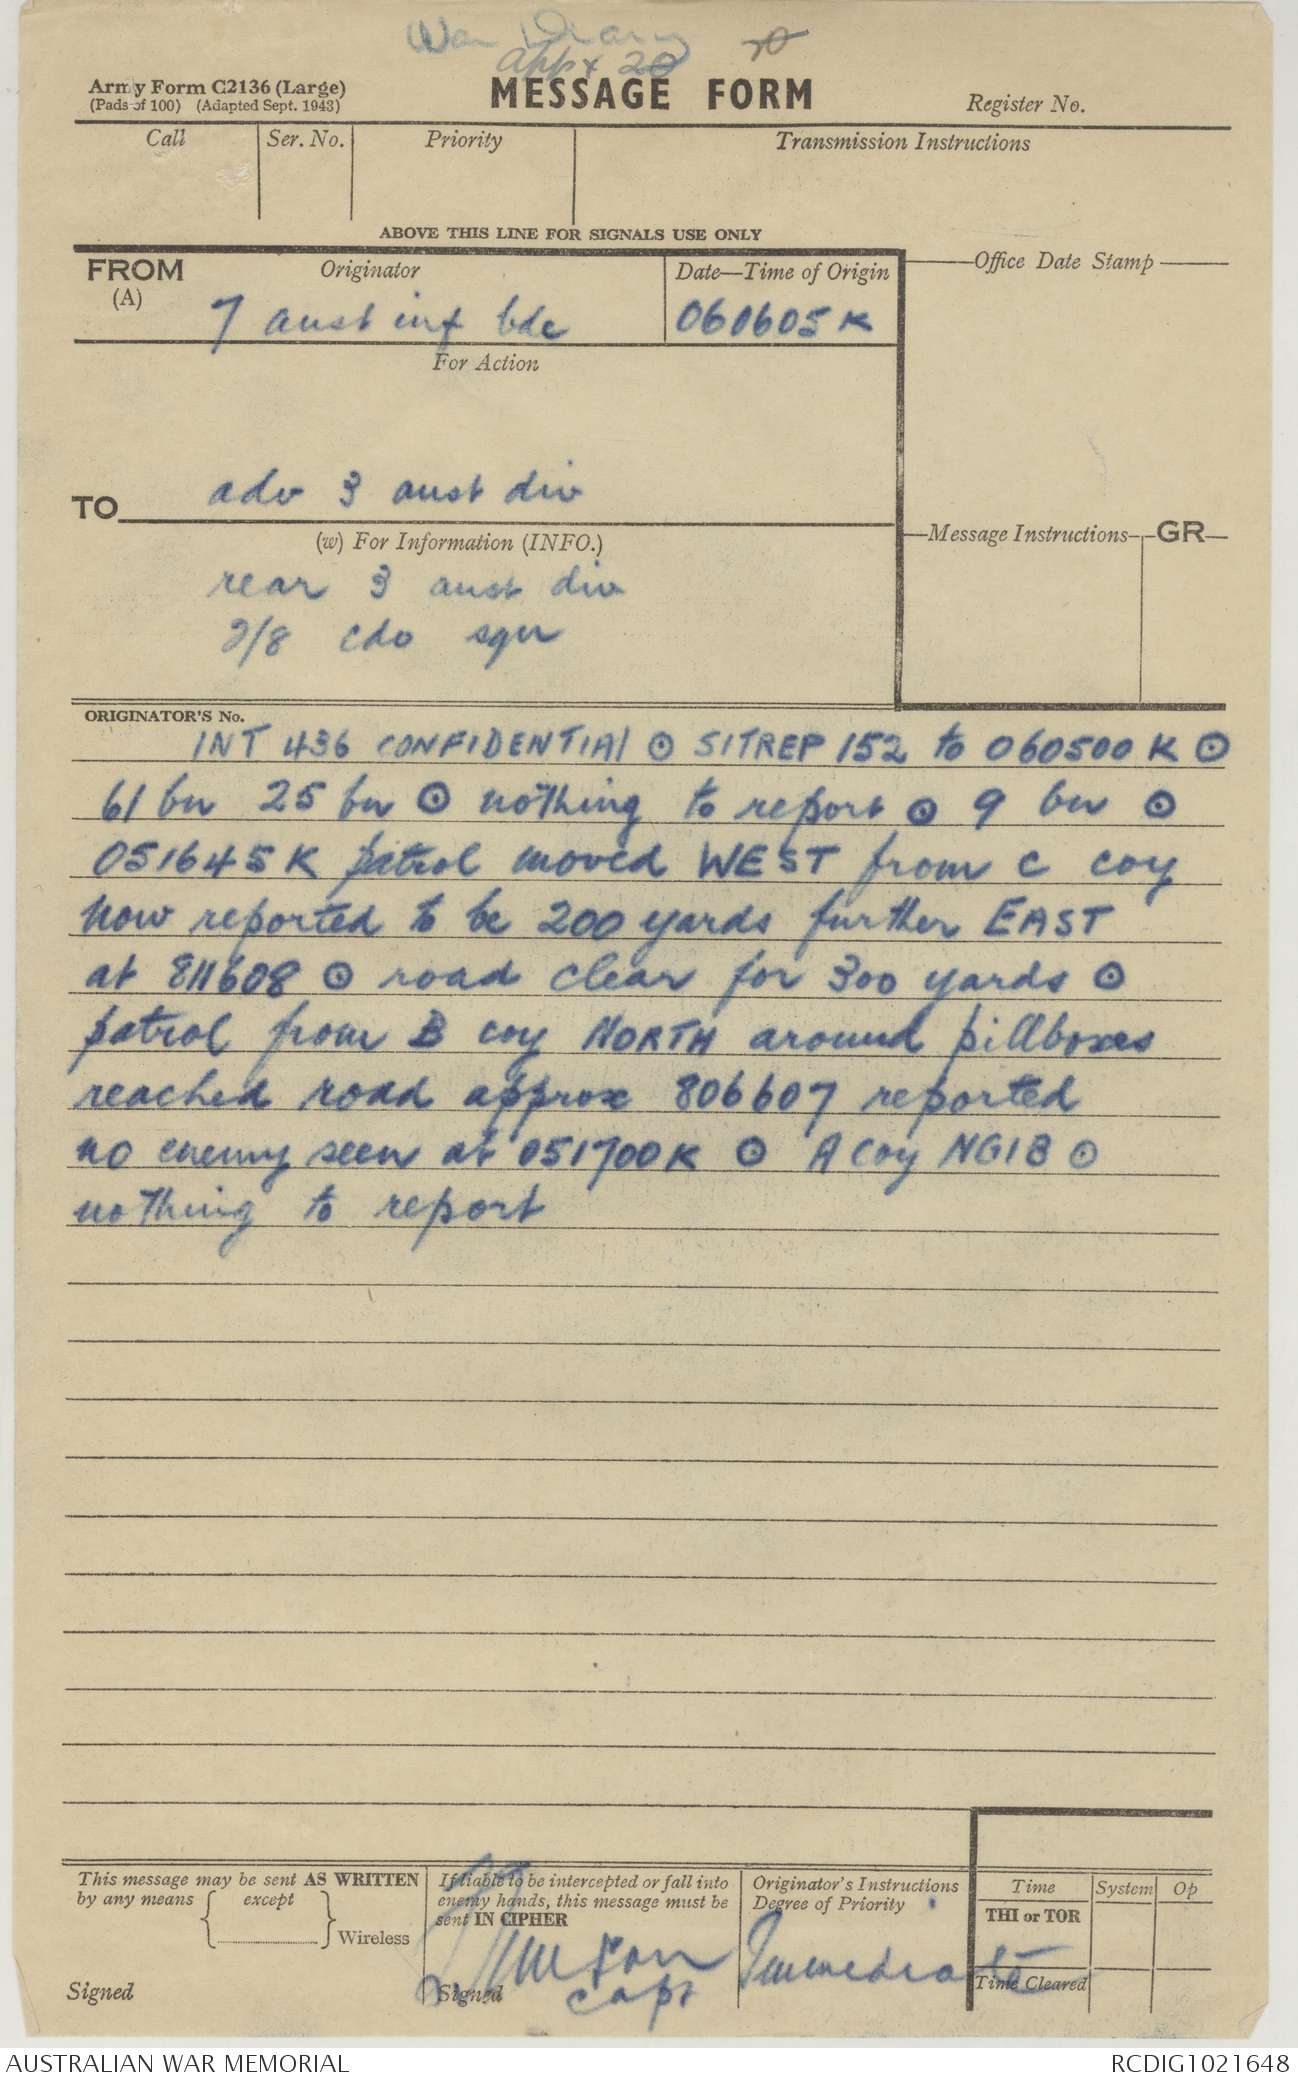 War Diary
appx 20
Army Form C2136 (Large)
(Pads of 100) (Adapted Sept. 1943)
MESSAGE FORM
Register No.
Call Ser. No. Priority Transmission Instructions
ABOVE THIS LINE FOR SIGNALS USE ONLY
FROM Originator Date—Time of Origin Office Date Stamp
(A)
7 aust inf bde 060605 K
For Action
adv 3 aust div
TO
(w) For Information (INFO.) Message Instructions GR
rear 3 aust div
2/8 cdo sqn
ORIGINATOR'S No.
INT 436 CONFIDENTIAl ⊙ SITREP 152 to 060500 K ⊙
61 bn 25 bn ⊙ nothing to report ⊙ 9 bn ⊙
051645 K patrol moved WEST from C coy
now reported to be 200 yards further EAST
at 811608 ⊙ road clear for 300 yards ⊙
patrol from B coy NORTH around pillboxes
reached road approx 806607 reported
no enemy seen at 051700 K ⊙ A coy NGIB ⊙
nothing to report
This message may be sent AS WRITTEN
by any means { except } Wireless
Signed
If liable to be intercepted or fall into
enemy hands, this message must be
sent IN CIPHER
Signed
capt
Originator's Instructions
Degree of Priority
Immediate
Time System Op
THI or TOR
Time Cleared
AUSTRALIAN WAR MEMORIAL RCDIG1021648